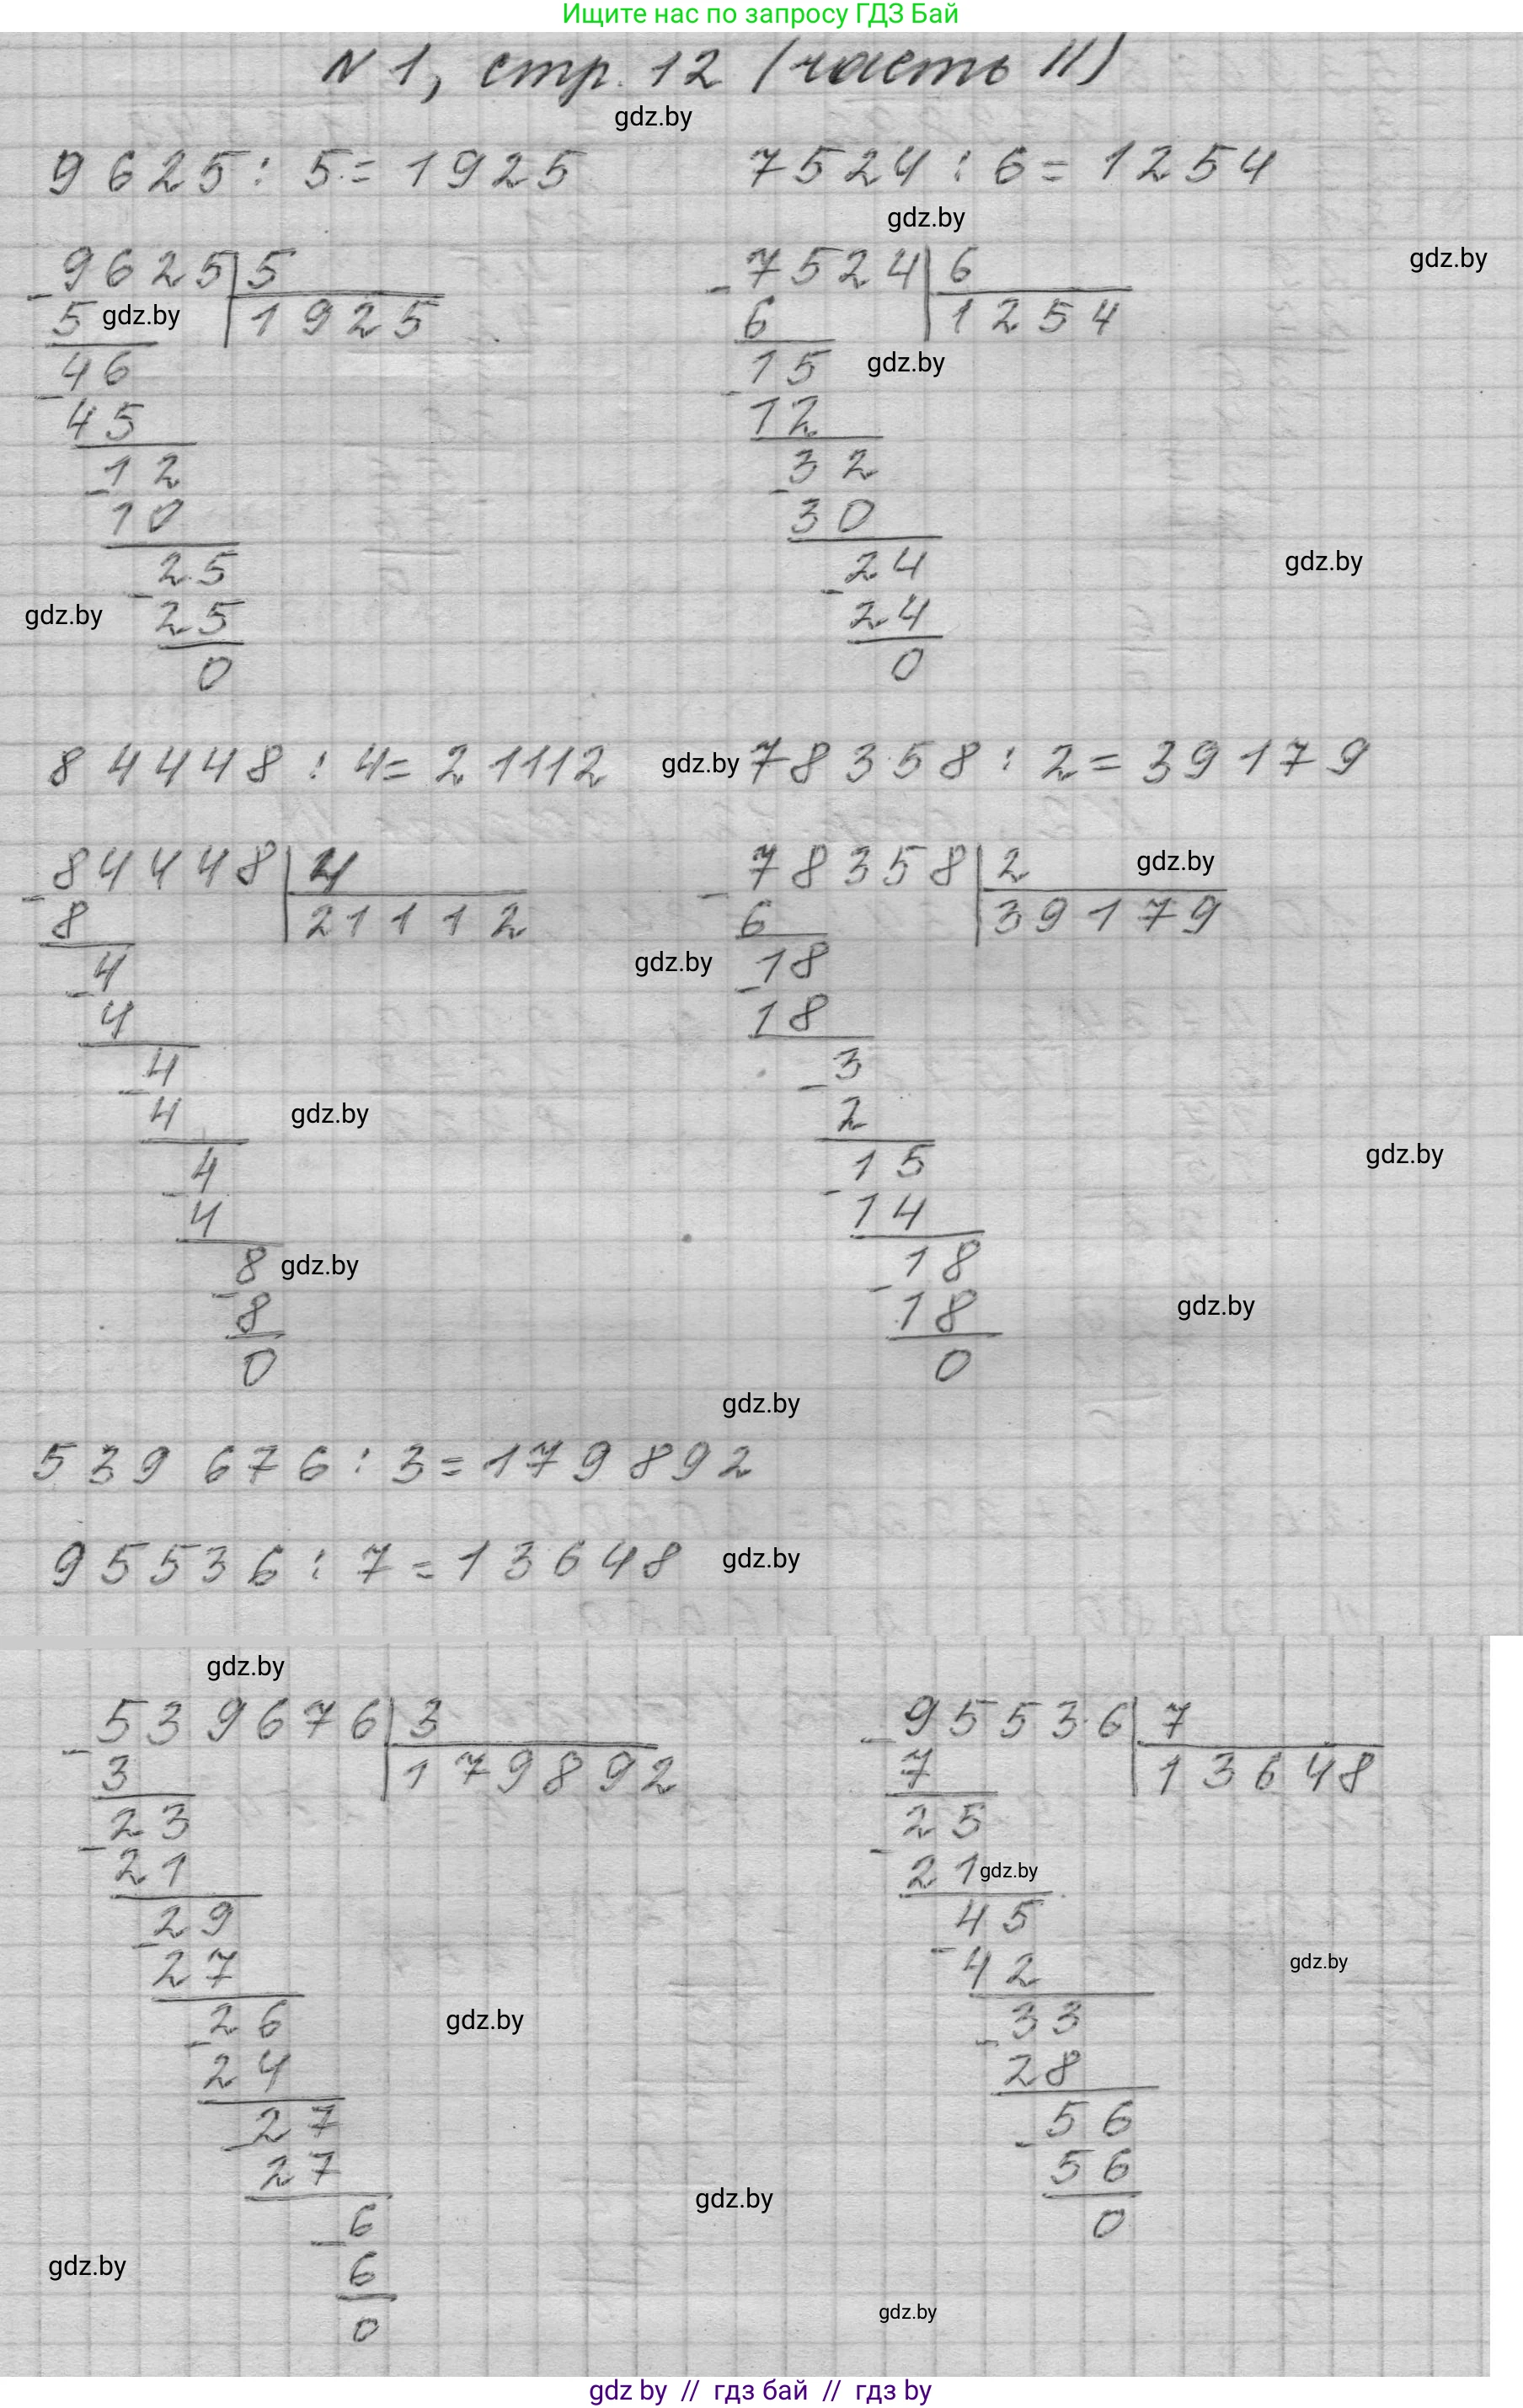 Ищите нас по запросу ГДЗ Бай
N 1, стр. 12 (часть II)
gdz.by
9625 : 5 = 1925
7524 : 6 = 1254
gdz.by
gdz.by
9625 | 5
- 5 gdz.by 1925
46
- 45
12
- 10
25
- 25
gdz.by
0
7524 | 6
- 6 1254
gdz.by
15
- 12
32
- 30
24
- 24
0
gdz.by
84448 : 4 = 21112
gdz.by
78358 : 2 = 39179
84448 | 4
- 8 21112
4
- 4
4
- 4
gdz.by
4
- 4
8 gdz.by
- 8
0
78358 | 2
gdz.by
- 6 39179
gdz.by
18
- 18
3
- 2
15
- 14
18
- 18
0
gdz.by
gdz.by
gdz.by
539 676 : 3 = 179 892
95536 : 7 = 13648
gdz.by
gdz.by
539676 | 3
- 3 179892
23
- 21
29
- 27
26
- 24
gdz.by
27
- 27
6
- 6
0
gdz.by
95536 | 7
- 7 13648
25
- 21 gdz.by
45
- 42
gdz.by
33
- 28
56
- 56
0
gdz.by
gdz.by
gdz by // гдз бай // гдз by